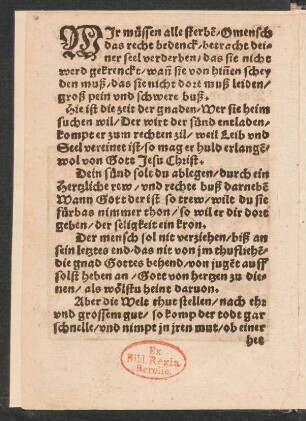 WIr müssen alle sterbē/O mensch
das recht bedenck/betracht dei-
ner seel verderben/das sie nicht
werd gekrenckt/wañ sie von hinēn schey
den muß/das sie nicht dort muß leiden/
groß pein vnd schwere buß.
Hie ist die zeit der gnaden/Wer sie heim
suchen wil/Der wirt der sünd entladen/
kompt er zum rechten zil/weil Leib vnd
Seel vereinet ist/so mag er huld erlangē/
wol von Gott Jesu Christ.
Dein sünd solt du ablegen/durch ein
Hertzliche rew/vnd rechte buß darnebē
Wann Gott der ist so trew/wilt du sie
fürbas nimmer thon/so wil er dir dort
geben/der seligkeit ein kron.
Der mensch sol nit verziehen/biß an
sein letztes end/das nit von jm thu fliehē/
die gnad Gottes behend/von jugēt auff
solst heben an/Gott von hertzen zu die-
nen/als wölstu heint daruon.
Aber die Welt thut stellen/nach ehr
vnd grossem gut/so komp der todt gar
schnelle/vnd nimpt jn jren mut/ob einer
het
Ex
Bibl. Regia
Berolin.